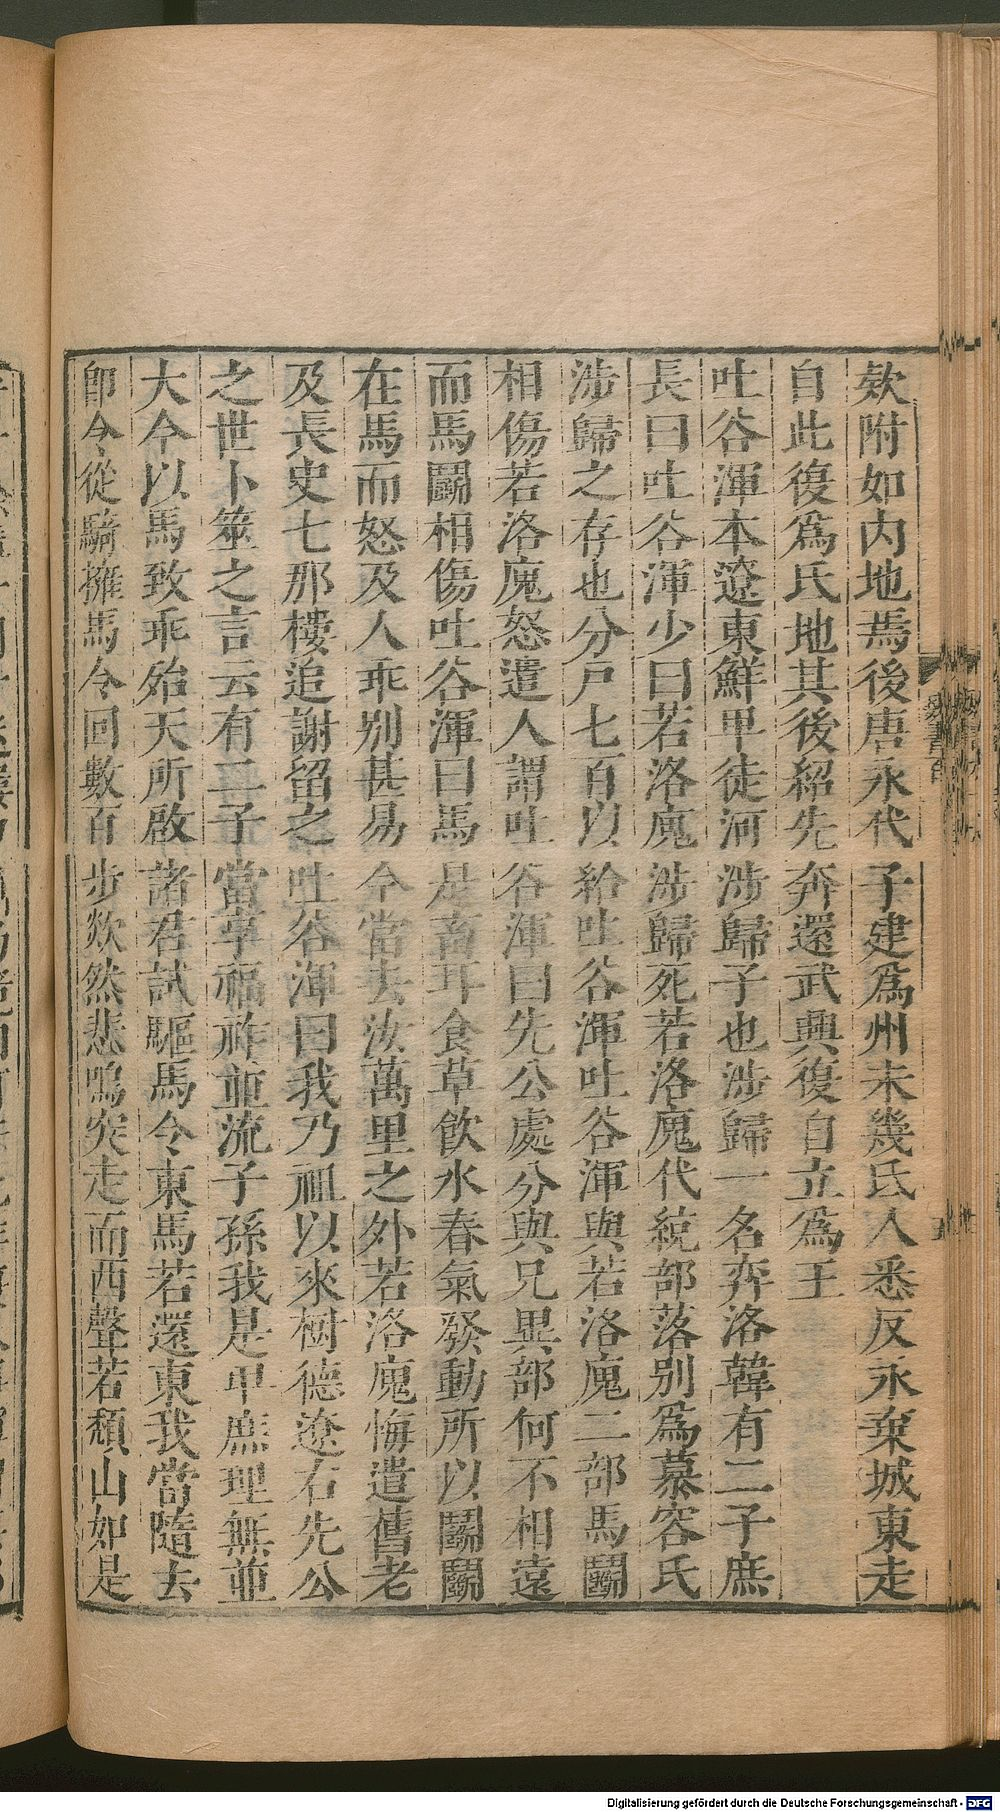 欵附如内地焉後唐永代子建爲州未幾氐人悉反永棄城東走
自此復爲氐地其後紹先奔還武興復自立爲王
吐谷渾本遼東鮮卑徒河涉歸子也涉歸一名弈洛韓有二子庶
長曰吐谷渾少曰若洛廆涉歸死若洛廆代統部落别爲慕容氏
涉歸之存也分户七百以給吐谷渾吐谷渾與若洛廆二部馬鬬
相傷若洛廆怒遣人謂吐谷渾曰先公處分與兄異部何不相遠
而馬鬬相傷吐谷渾曰馬是畜耳食草飲水春氣發動所以鬬鬬
在馬而怒及人乖别甚易今當去汝萬里之外若洛廆悔遣舊老
及長史七那樓追謝留之吐谷渾曰我乃祖以來樹德遼右先公
之世卜筮之言云有二子當享福祚並流子孫我是卑庶理無並
大今以馬致乖殆天所啟諸君試驅馬令東馬若還東我當隨去
卽令從騎擁馬令回數百步欻然悲鳴突走而西聲若頽山如是
Digitalisierung gefördert durch die Deutsche Forschungsgemeinschaft - DFG